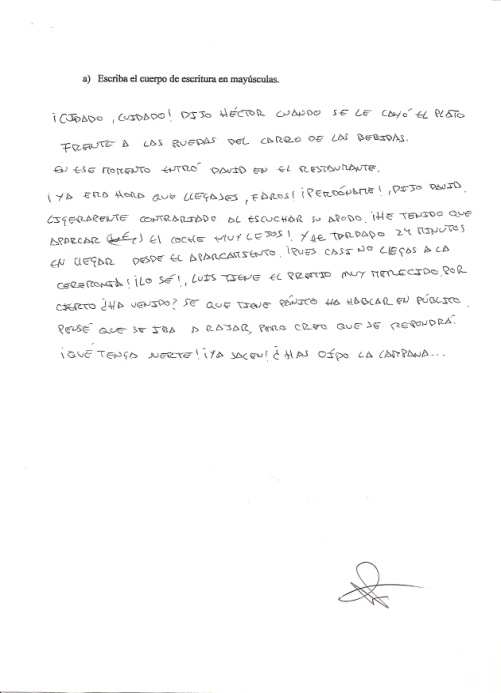 a) Escriba el cuerpo de escritura en mayúsculas.
¡CUIDADO, CUIDADO! DIJO HÉCTOR CUANDO SE LE CAYÓ EL PLATO
FRENTE A LAS RUEDAS DEL CARRO DE LAS BEBIDAS.
EN ESE MOMENTO ENTRÓ DAVID EN EL RESTAURANTE.
¡YA ERA HORA QUE LLEGASES, FAROS! ¡PERDÓNAME!, DIJO DAVID,
LIGERAMENTE CONTRARIADO AL ESCUCHAR SU APODO. ¡HE TENIDO QUE
APARCAR EL COCHE MUY LEJOS! Y HE TARDADO 24 MINUTOS
EN LLEGAR DESDE EL APARCAMIENTO. ¡PUES CASI NO LLEGAS A LA
CEREMONIA! ¡LO SÉ!, LUIS TIENE EL PREMIO MUY MERECIDO, POR
CIERTO ¿HA VENIDO? SE QUE TIENE PÁNICO HA HABLAR EN PÚBLICO.
PENSÉ QUE SE IBA A RAJAR, PERO CREO QUE SE REPONDRÁ.
¡QUÉ TENGA SUERTE! ¡YA SALEN! ¿HAS OÍDO LA CAMPANA...